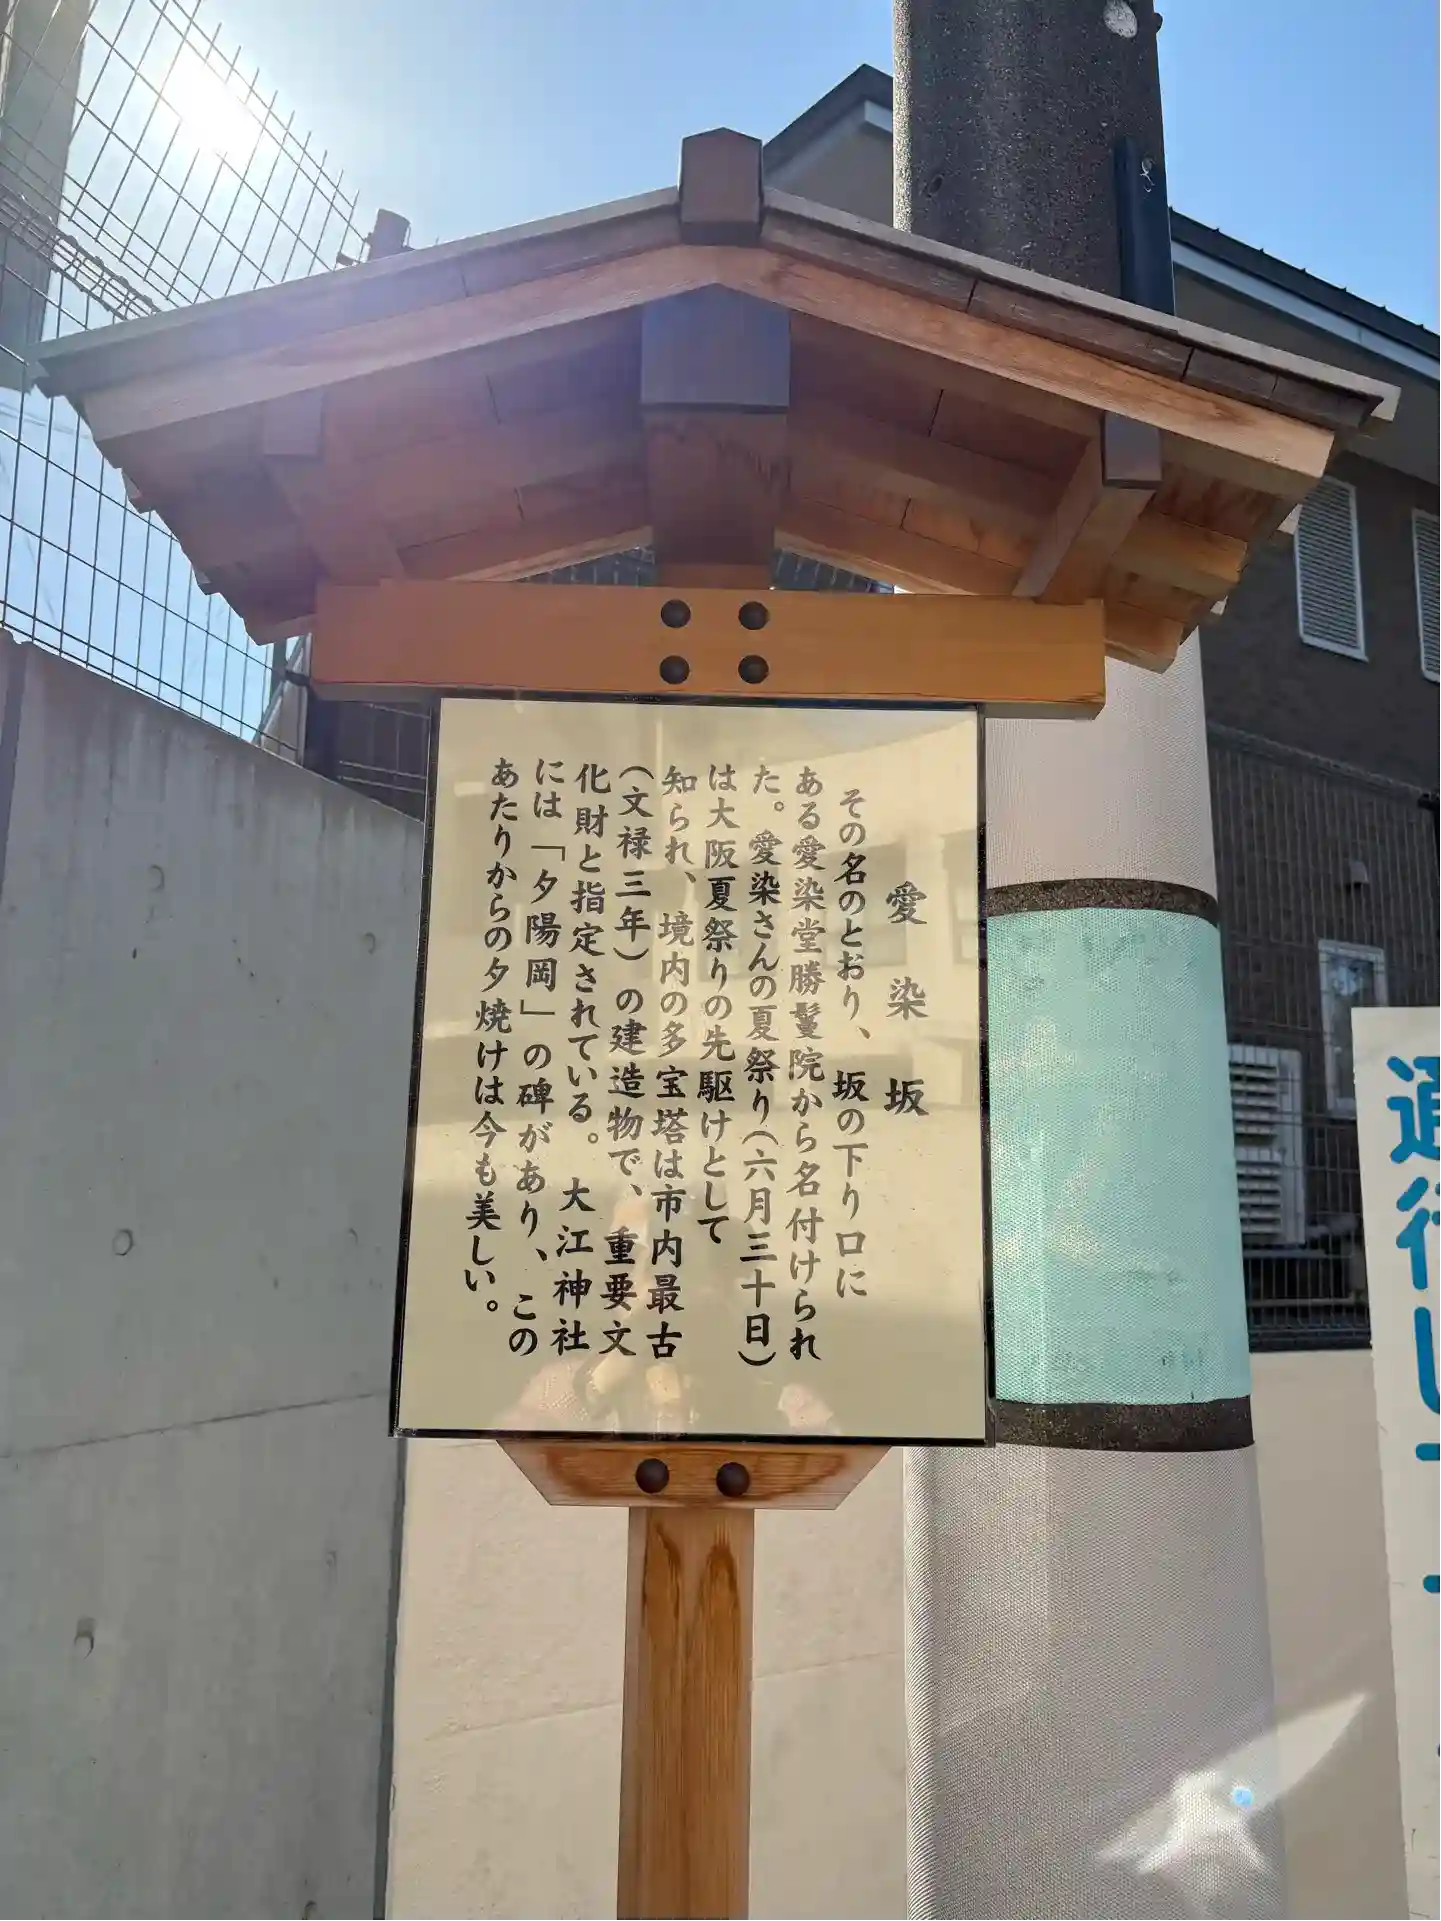 愛染坂
その名のとおり、坂の下り口に
ある愛染堂勝鬘院から名付けられ
た。愛染さんの夏祭り(六月三十日)
は大阪夏祭りの先駆けとして
知られ、境内の多宝塔は市内最古
(文禄三年)の建造物で、重要文
化財と指定されている。大江神社
には「夕陽岡」の碑があり、この
あたりからの夕焼けは今も美しい。
通行し